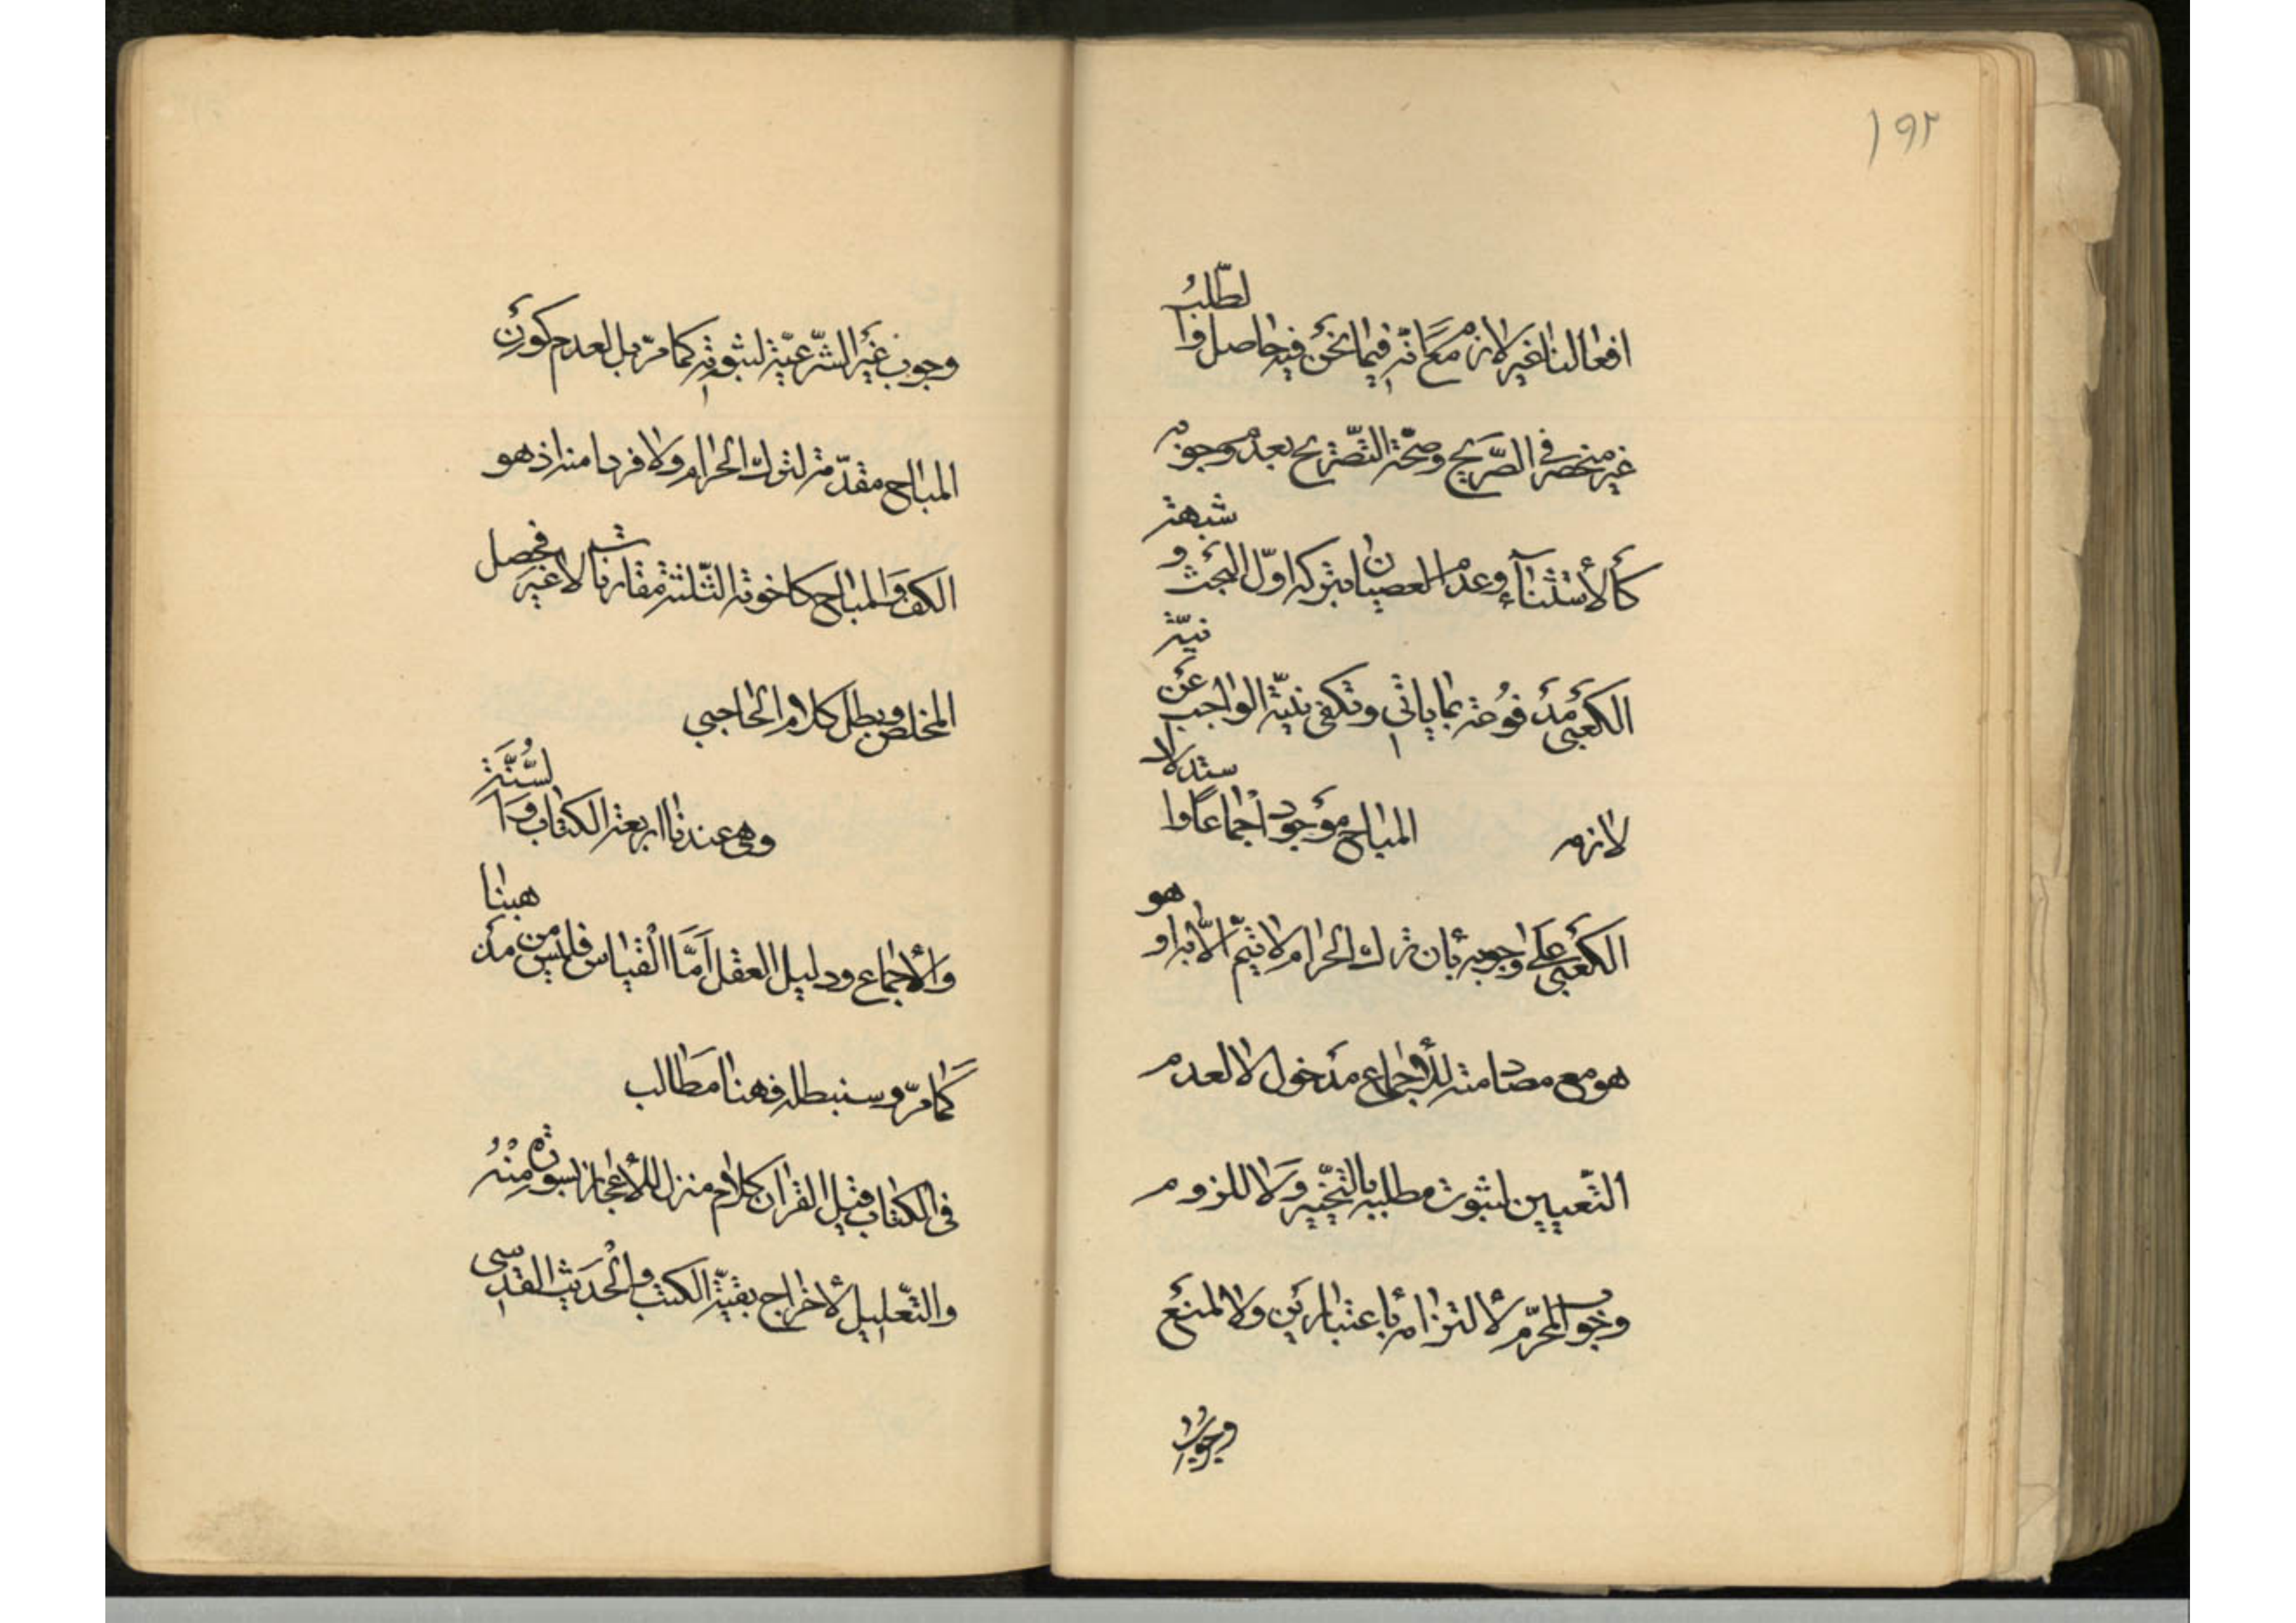 ١٩٢
افعالنا غير لازم مع انّه فيما نحن فيه حاصل والطّلب
غير منحصر في الصّريح وصحّة التّصريح بعدم وجوبه
كالأستثناء وعدم العصيان بتركه اوّل البحث وشبهة
الكعبي مدفوعة بما يأتي وتكفي نيّة الواجب عن نيّة
لازمه المباح موجود اجماعًا واستدلال
الكعبي على وجوبه بأن ترك الحرام لا يتمّ الاّ به او هو
هو مع مصادمته للأجماع مدخول لا لعدم
التّعيين لثبوت مطلبه بالتّخيير ولا للزوم
وجوب المحرّم لألتزامه بأعتبارين ولا لمنع
وجوب
وجوب غير الشّرعيّة لثبوته كما مرّ بل لعدم كون
المباح مقدّمة لترك الحرام ولا فردا منه اذ هو
الكف والمباح كاخوته الثّلثة مقارنا لا غير فحصل
المخلص وبطل كلام الحاجبي
وهي عندنا اربعة الكتاب والسُّنَّة
والأجماع ودليل العقل أمّا القياس فليس من مذهبنا
كما مرّ وسنبطله فهنا مطالب
في الكتاب قيل القرآن كلام منزل للأعجاز بسورة منه
والتّعليل لأخراج بقيّة الكتب والحديث القدسي